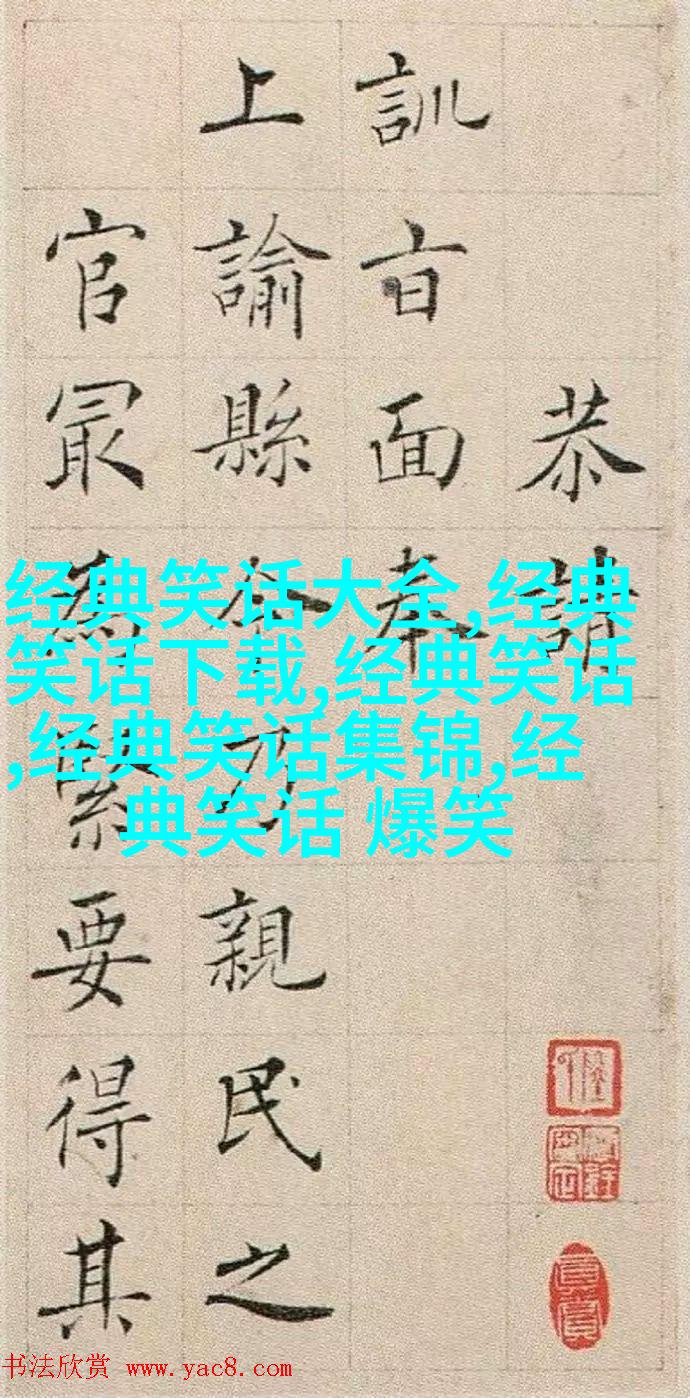 恭請
訓㫖面奉
上諭縣令乃親民之
官冣為緊要得其
经典笑话大全,经典
笑话下载,经典笑话
,经典笑话集锦,经
典笑话 爆笑
书法欣赏 www.yac8.com